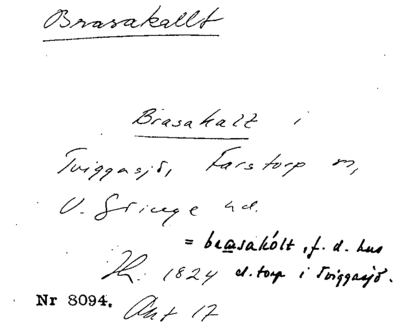 Brasakallt
Brasakalt i
Tviggasjö, Farstorp sn,
V. Göinge hd.
= brasakólt, f. d. hus
Hfl. 1824 d. torp i Tviggasjö.
Nr 8094. Akt 17